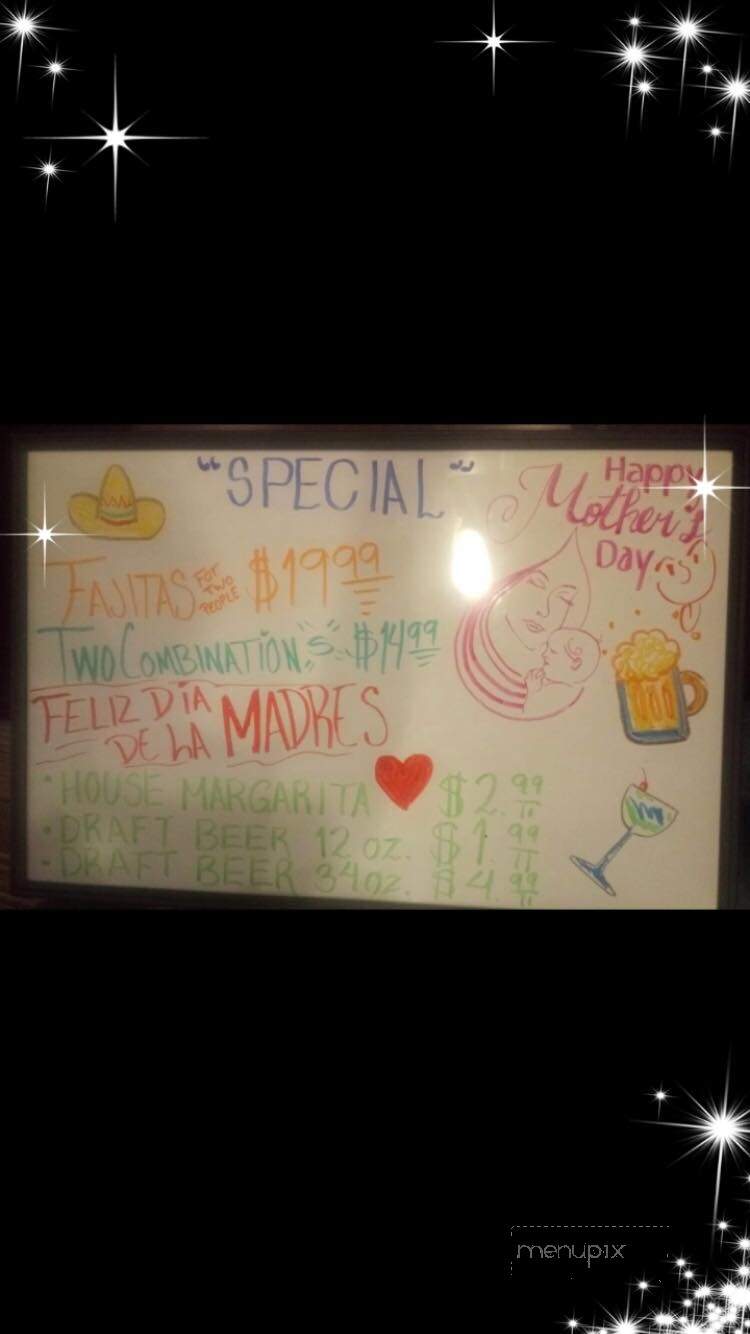 "SPECIAL"
Happy
Mother's
Day
FAJITAS FOR TWO PEOPLE $19.99
TWO COMBINATION"S" $14.99
FELIZ DÍA
DE LA MADRES
• HOUSE MARGARITA $2.99
• DRAFT BEER 12 OZ. $1.99
- DRAFT BEER 34 OZ. $4.99
menupix